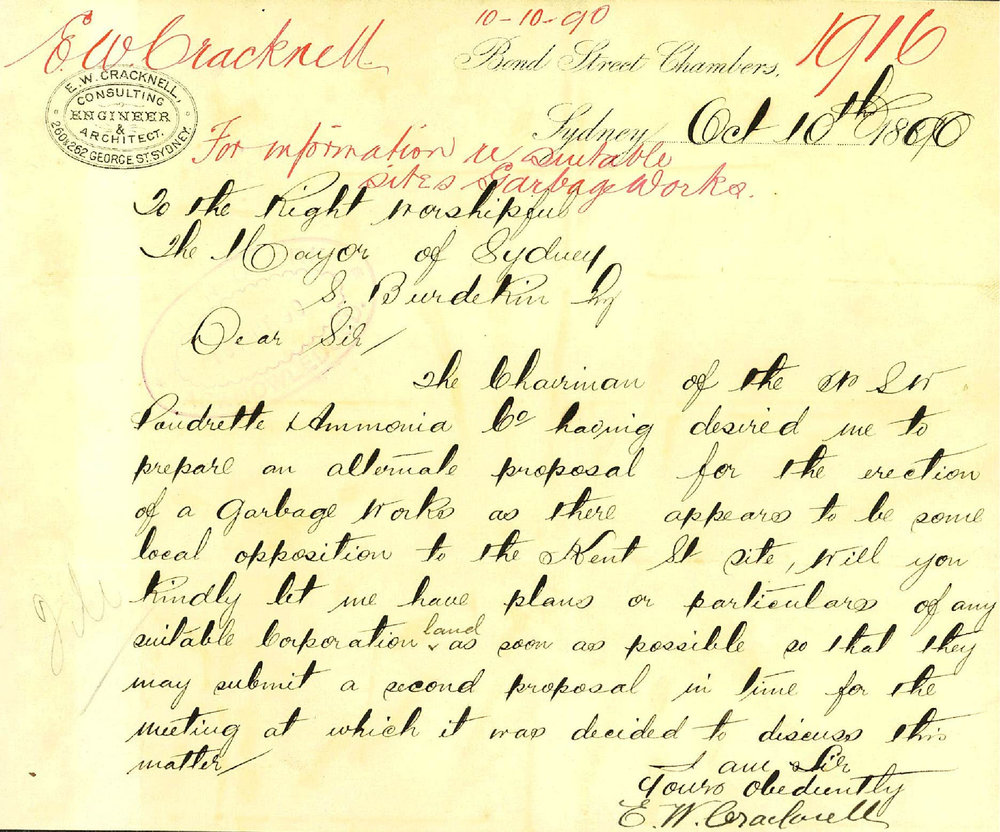 E. W. Cracknell
10-10-90
1916
Bond Street Chambers,
E. W. CRACKNELL,
CONSULTING
ENGINEER
&
ARCHITECT.
260 & 262 GEORGE ST. SYDNEY.
Sydney Oct 10th 1890
For information re suitable
sites Garbage Works.
To the Right Worshipful
The Mayor of Sydney
S. Burdekin Esq
Dear Sir,
The Chairman of the N S W
Poudrette & Ammonia Co having desired me to
prepare an alternate proposal for the erection
of a Garbage Works as there appears to be some
local opposition to the Kent St site, will you
kindly let me have plans or particulars of any
suitable Corporation land as soon as possible so that they
may submit a second proposal in time for the
meeting at which it was decided to discuss this
matter
I am Sir
Yours obediently
E. W. Cracknell